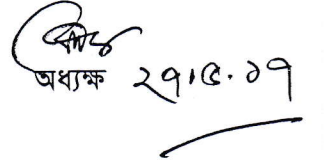 অধ্যক্ষ ২৭।৫.১৭